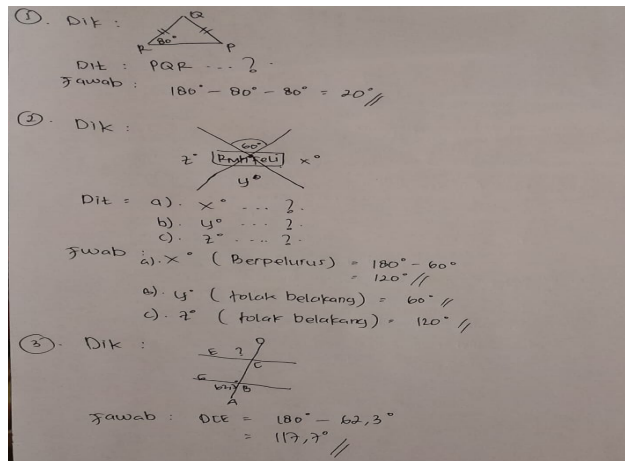 1. Dik :
Q
R 80° P
Dit : PQR ... ?
Jawab :
180° - 80° - 80° = 20°//
2. Dik :
60°
z° Rmh Feli x°
y°
Dit = a). x° ... ?
b). y° ... ?
c). z° .... ?
Jawab :
a). x° ( Berpelurus) = 180° - 60°
= 120° //
B). y° ( tolak belakang) = 60° //
c). z° ( tolak belakang) = 120° //
3. Dik :
D
E ? C
B
A
Jawab : DCE = 180° - 62,3°
= 117,7° //